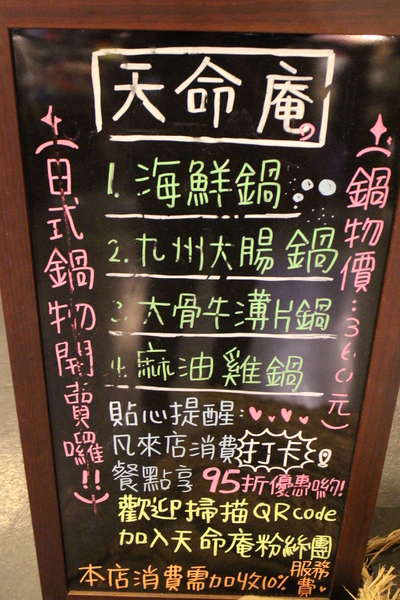 天命庵
日式鍋物開賣囉!!
1.海鮮鍋
2.九州大腸鍋
3.大骨牛薄片鍋
4.麻油雞鍋
鍋物價:360元
貼心提醒:
凡來店消費打卡
餐點享95折優惠喲!
歡迎掃描QRcode
加入天命庵粉絲團
本店消費需加收10%服務費